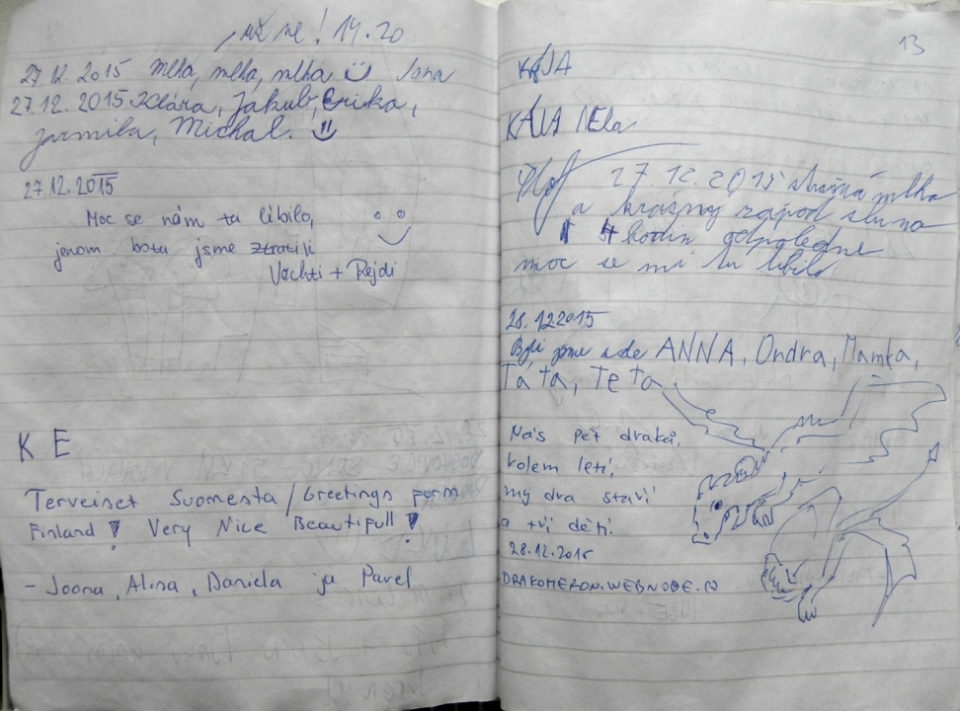 už ne! 14.20
27.12.2015 mlha, mlha, mlha Jana
27.12.2015 Klára, Jakub, Erika,
Jarmila, Michal.
27.12.2015
Moc se nám tu líbilo,
jenom botu jsme ztratili
Vachti + Rejdi
K E
Terveiset Suomesta / Greetings form
Finland! Very Nice Beautifull!
- Joona, Alina, Daniela ja Pavel
13
KÁJA
KÁJA NEla
27.12.2015 strašná mlha
a krásný západ slunce
4 hodin odpoledne
moc se mi tu líbilo
28.12.2015
Byli jsme zde ANNA, Ondra, Mamka,
Táta, Teta
Nás pět draků,
kolem letí,
my dra staří
a tři děti.
28.12.2015
DRAKOMEZON.WEBNODE.CZ